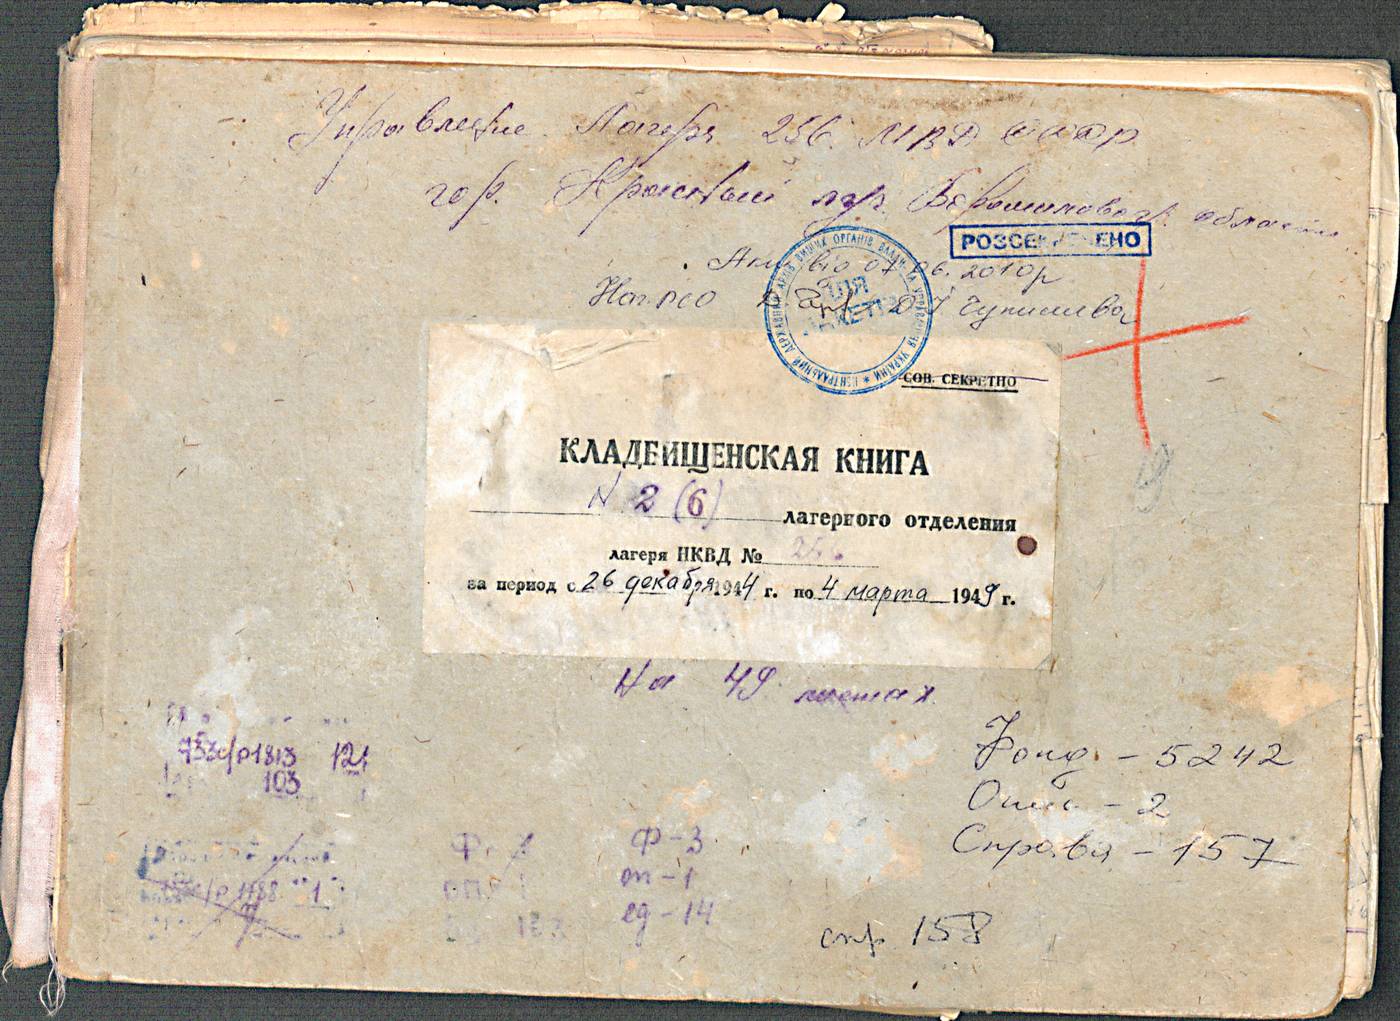 Управление Лагеря 256 МВД СССР
гор. Красный луч Ворошиловогр. области
РОЗСЕКРЕЧЕНО
Акт від 07.06.2010р
ЦЕНТРАЛЬНИЙ ДЕРЖАВНИЙ АРХІВ ВИЩИХ ОРГАНІВ ВЛАДИ ТА УПРАВЛІННЯ УКРАЇНИ
ДЛЯ
СОВ. СЕКРЕТНО
КЛАДБИЩЕНСКАЯ КНИГА
N 2 (6) лагерного отделения
лагеря НКВД № 256
за период с 26 декабря 1944 г. по 4 марта 1949 г.
На 49 листах
733с/р1813 12
103
Фонд - 5242
Опис - 2
Справа - 157
Ф-3
оп-1
ед-14
с/р 1188 "1"
163
спр 158